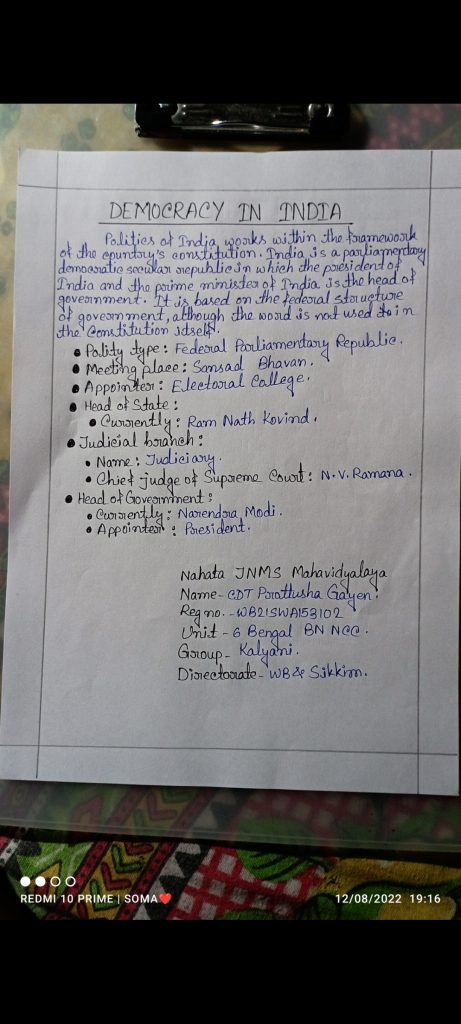 DEMOCRACY IN INDIA
Politics of India works within the framework
of the country's constitution. India is a parliamentary
democratic secular republic in which the president of
India and the prime minister of India is the head of
government. It is based on the federal structure
of government, although the word is not used in
the constitution itself.
• Polity type: Federal Parliamentary Republic.
• Meeting place: Sansad Bhavan.
• Appointer: Electoral College.
• Head of State:
• Currently: Ram Nath Kovind.
• Judicial branch:
• Name: Judiciary.
• Chief judge of Supreme Court: N.V. Ramana.
• Head of Government:
• Currently: Narendra Modi.
• Appointer: President.
Nahata JNMS Mahavidyalaya
Name - CDT Prattusha Gayen.
Reg no. - WB21SWA153102
Unit - 6 Bengal BN NCC.
Group - Kalyani.
Directorate - WB & Sikkim.
REDMI 10 PRIME | SOMA❤️
12/08/2022 19:16